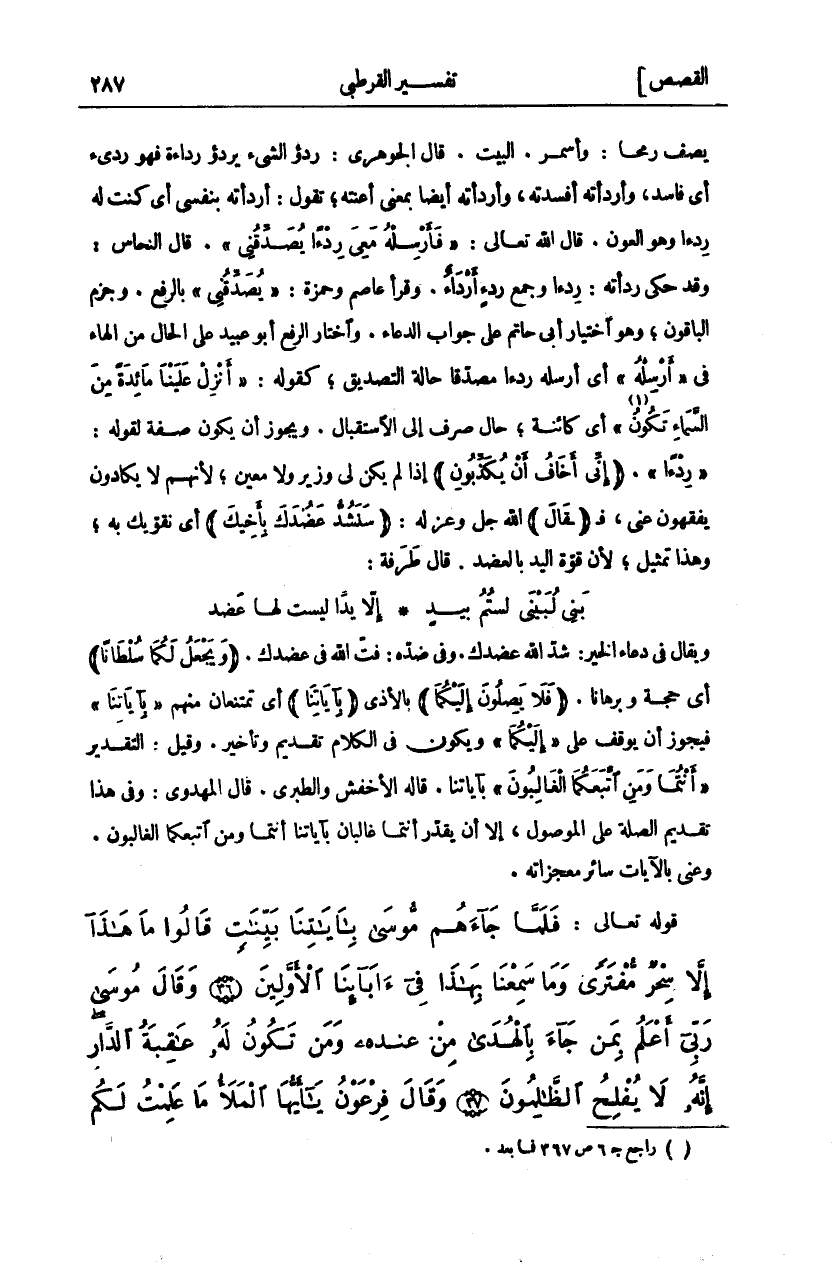 القصص] تفسير القرطبى ٢٨٧
يصف رمحا : وأسمر . البيت . قال الجوهرى : ردؤ الشىء يردؤ رداءة فهو ردىء
أى فاسد، وأردأته أفسدته، وأردأته أيضا بمعنى أعنته؛ تقول : أردأته بنفسى أى كنت له
رِدءا وهو العون . قال الله تعالى : « فَأَرْسِلْهُ مَعِىَ رِدْءًا يُصَدِّقُنِى » . قال النحاس :
وقد حكى ردأته : رِدءا وجمع ردء أَرْدَاءٌ . وقرأ عاصم وحمزة : « يُصَدِّقُنِى » بالرفع . وجزم
الباقون ؛ وهو ٱختيار أبى حاتم على جواب الدعاء . وٱختار الرفع أبو عبيد على الحال من الهاء
فى « أَرْسِلْهُ » أى أرسله ردءا مصدّقا حالة التصديق ؛ كقوله : « أَنْزِلْ عَلَيْنَا مَائِدَةً مِنَ
السَّمَاءِ تَكُونُ (١) » أى كائنة ؛ حال صرف إلى الٱستقبال . ويجوز أن يكون صفة لقوله :
« رِدْءًا » . ﴿ إِنِّى أَخَافُ أَنْ يُكَذِّبُونِ ﴾ إذا لم يكن لى وزير ولا معين ؛ لأنهم لا يكادون
يفقهون عنى ، فـ ﴿ ـقَالَ ﴾ الله جل وعز له : ﴿ سَنَشُدُّ عَضُدَكَ بِأَخِيكَ ﴾ أى نقوّيك به ؛
وهذا تمثيل ؛ لأن قوّة اليد بالعضد . قال طَرَفة :
بَنِى لُبَيْنَى لستُمُ بيدٍ * إلّا يدًا ليست لها عَضد
ويقال فى دعاء الخير: شدّ الله عضدك. وفى ضدّه: فتّ الله فى عضدك. ﴿وَيَجْعَلُ لَكُمَا سُلْطَانًا﴾
أى حجة وبرهانا . ﴿ فَلَا يَصِلُونَ إِلَيْكُمَا ﴾ بالأذى ﴿ بِآيَاتِنَا ﴾ أى تمتنعان منهم « بِآيَاتِنَا »
فيجوز أن يوقف على « إِلَيْكُمَا » ويكون فى الكلام تقديم وتأخير . وقيل : التقدير
« أَنْتُمَا وَمَنِ ٱتَّبَعَكُمَا الْغَالِبُونَ » بآياتنا . قاله الأخفش والطبرى . قال المهدوى : وفى هذا
تقديم الصلة على الموصول ، إلا أن يقدّر أنتما غالبان بآياتنا أنتما ومن ٱتبعكما الغالبون .
وعنى بالآيات سائر معجزاته .
قوله تعالى : فَلَمَّا جَآءَهُم مُّوسَىٰ بِـَٔايَـٰتِنَا بَيِّنَـٰتٍ قَالُوا مَا هَـٰذَآ
إِلَّا سِحْرٌ مُّفْتَرًى وَمَا سَمِعْنَا بِهَـٰذَا فِىٓ ءَابَآئِنَا ٱلْأَوَّلِينَ ٣٦ وَقَالَ مُوسَىٰ
رَبِّىٓ أَعْلَمُ بِمَن جَآءَ بِٱلْهُدَىٰ مِنْ عِندِهِۦ وَمَن تَكُونُ لَهُۥ عَـٰقِبَةُ ٱلدَّارِ
إِنَّهُۥ لَا يُفْلِحُ ٱلظَّـٰلِمُونَ ٣٧ وَقَالَ فِرْعَوْنُ يَـٰٓأَيُّهَا ٱلْمَلَأُ مَا عَلِمْتُ لَكُم
( ) راجع جـ ٦ ص ٣٦٧ فما بعد .